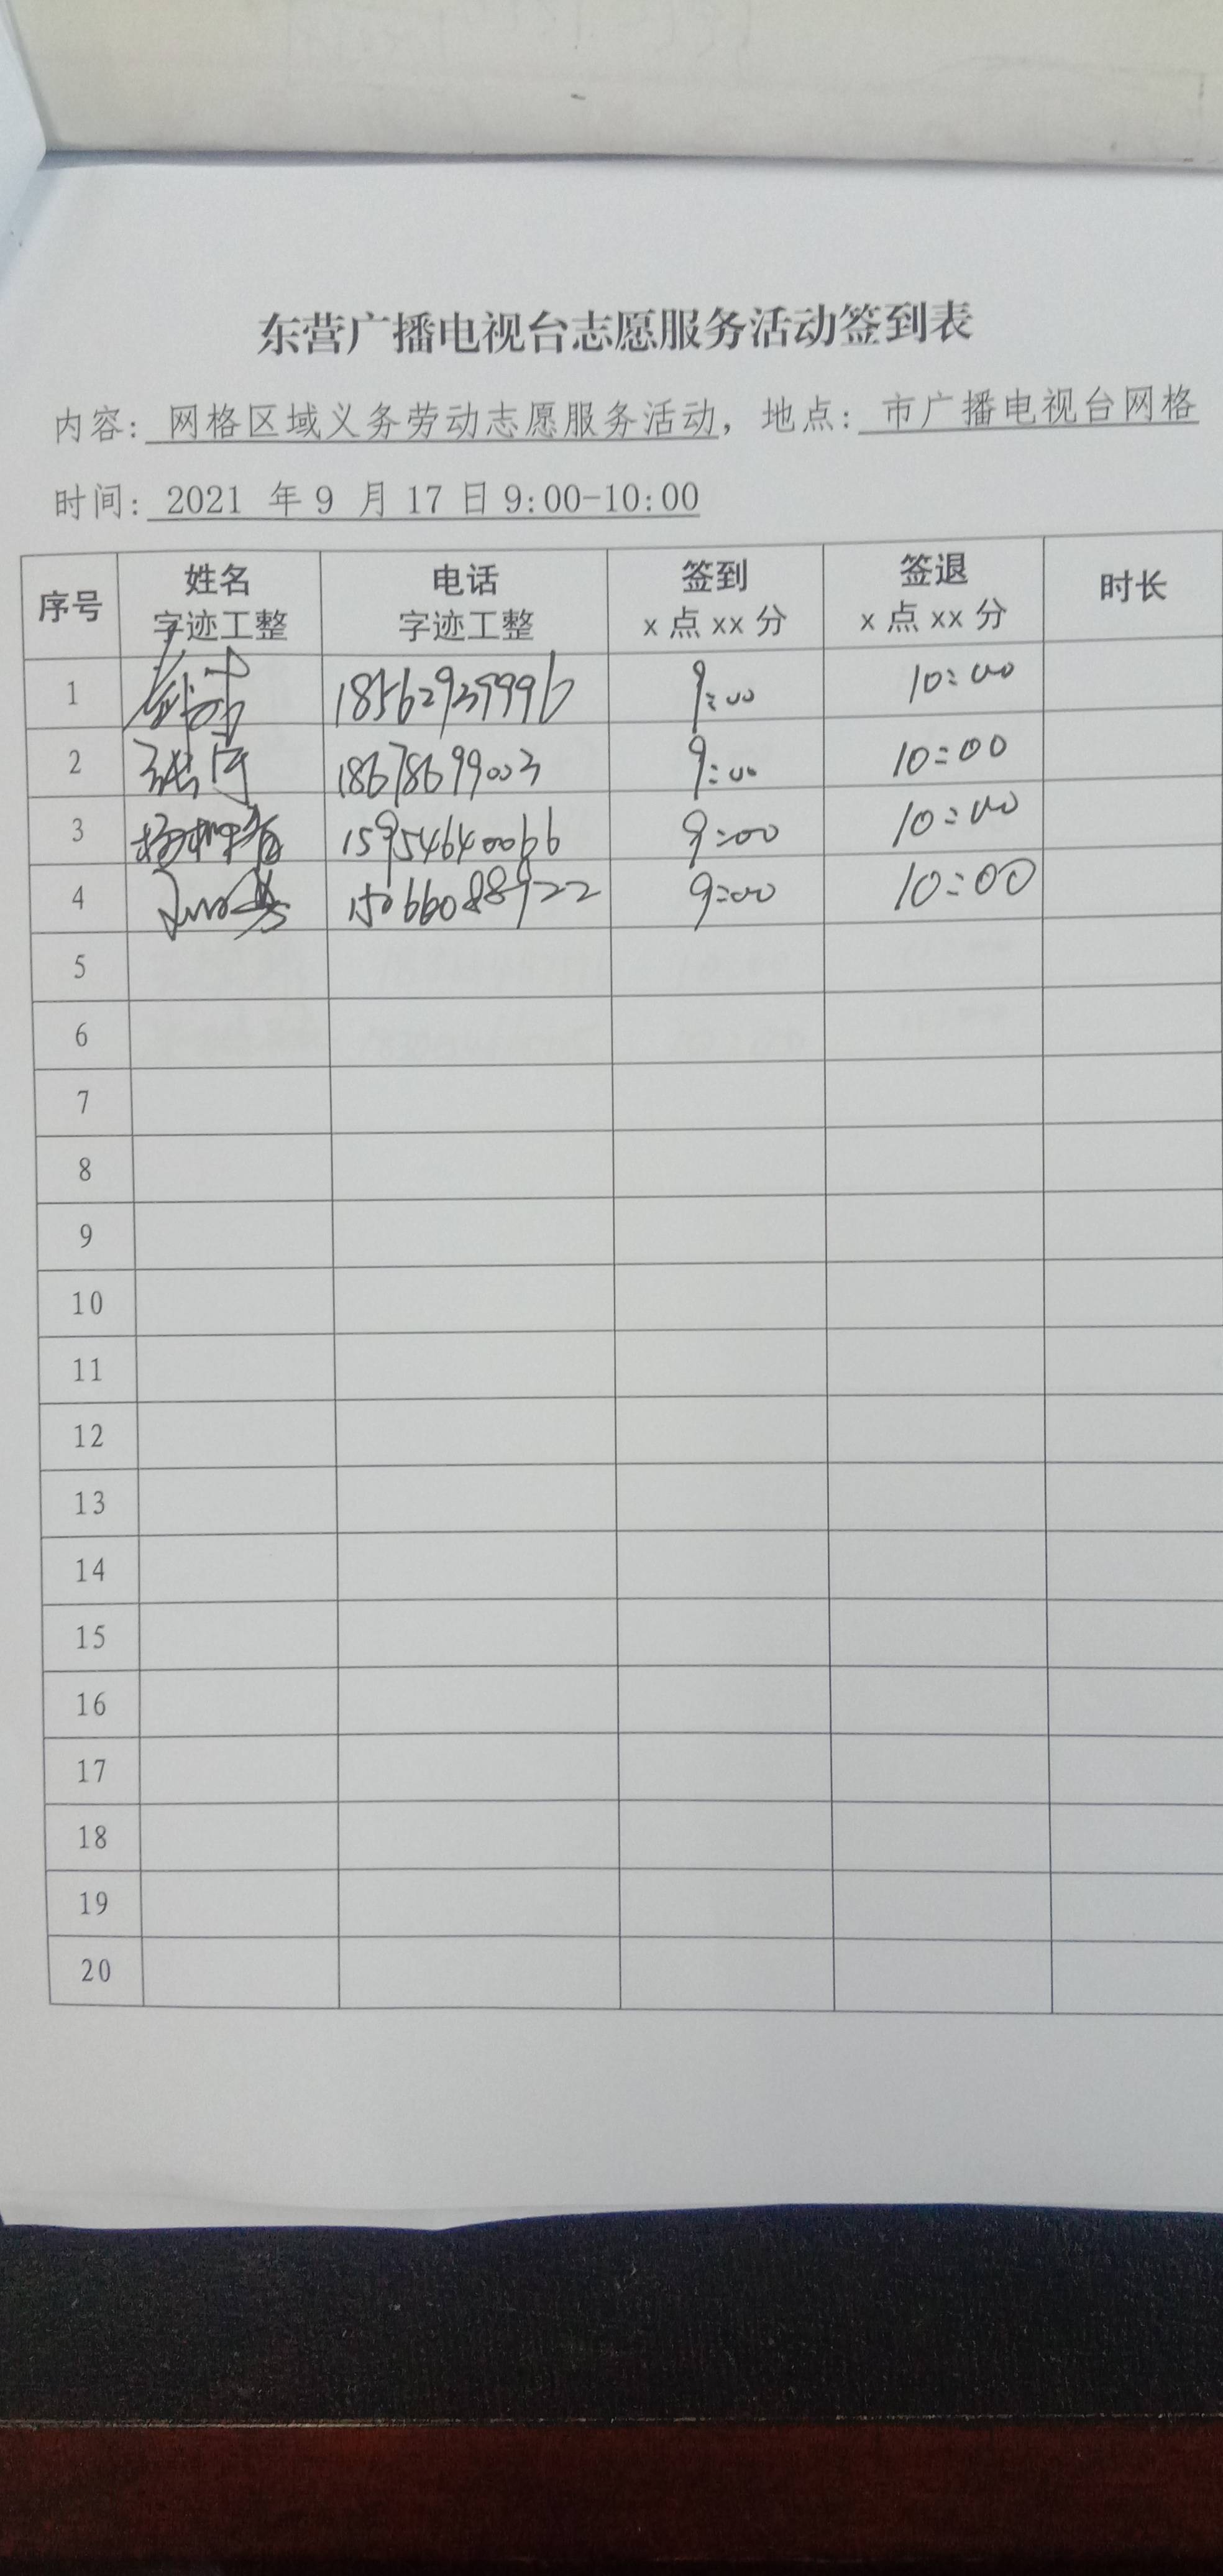 东营广播电视台志愿服务活动签到表
内容: 网格区域义务劳动志愿服务活动, 地点: 市广播电视台网格
时间: 2021 年 9 月 17 日 9:00-10:00
序号 姓名 字迹工整 电话 字迹工整 签到 x 点 xx 分 签退 x 点 xx 分 时长
1 9:00 10:00
2 18678699003 9:00 10:00
3 15954640066 9:00 10:00
4 15066088922 9:00 10:00
5
6
7
8
9
10
11
12
13
14
15
16
17
18
19
20